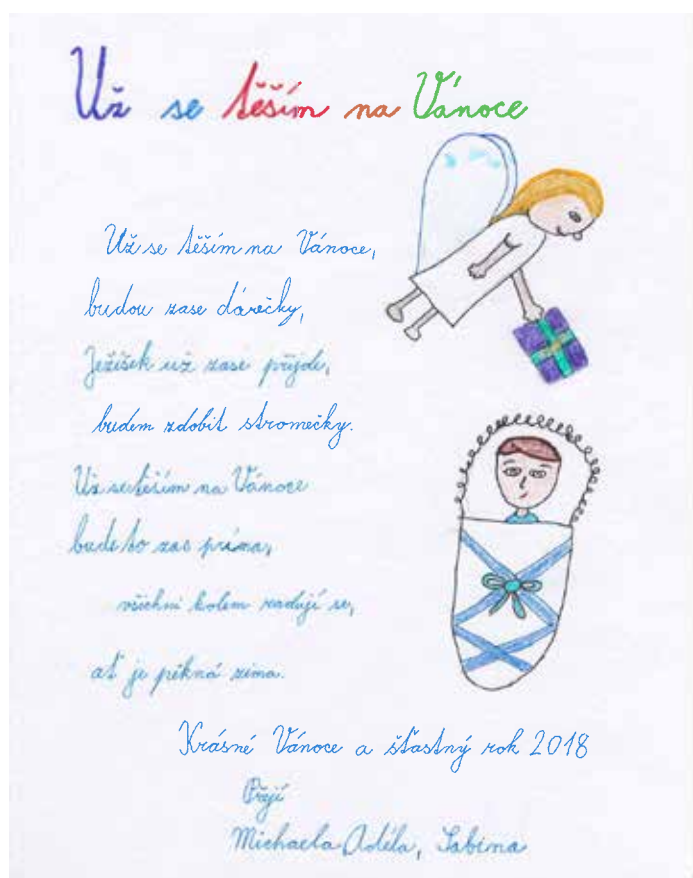 Už se těším na Vánoce
Už se těším na Vánoce,
budou zase dárečky,
Ježíšek už zase přijde,
budem zdobit stromečky.
Už se těším na Vánoce
bude to zas príma,
všichni kolem radují se,
ať je pěkná zima.
Krásné Vánoce a šťastný rok 2018
Přejí
Michaela, Adéla, Sabina